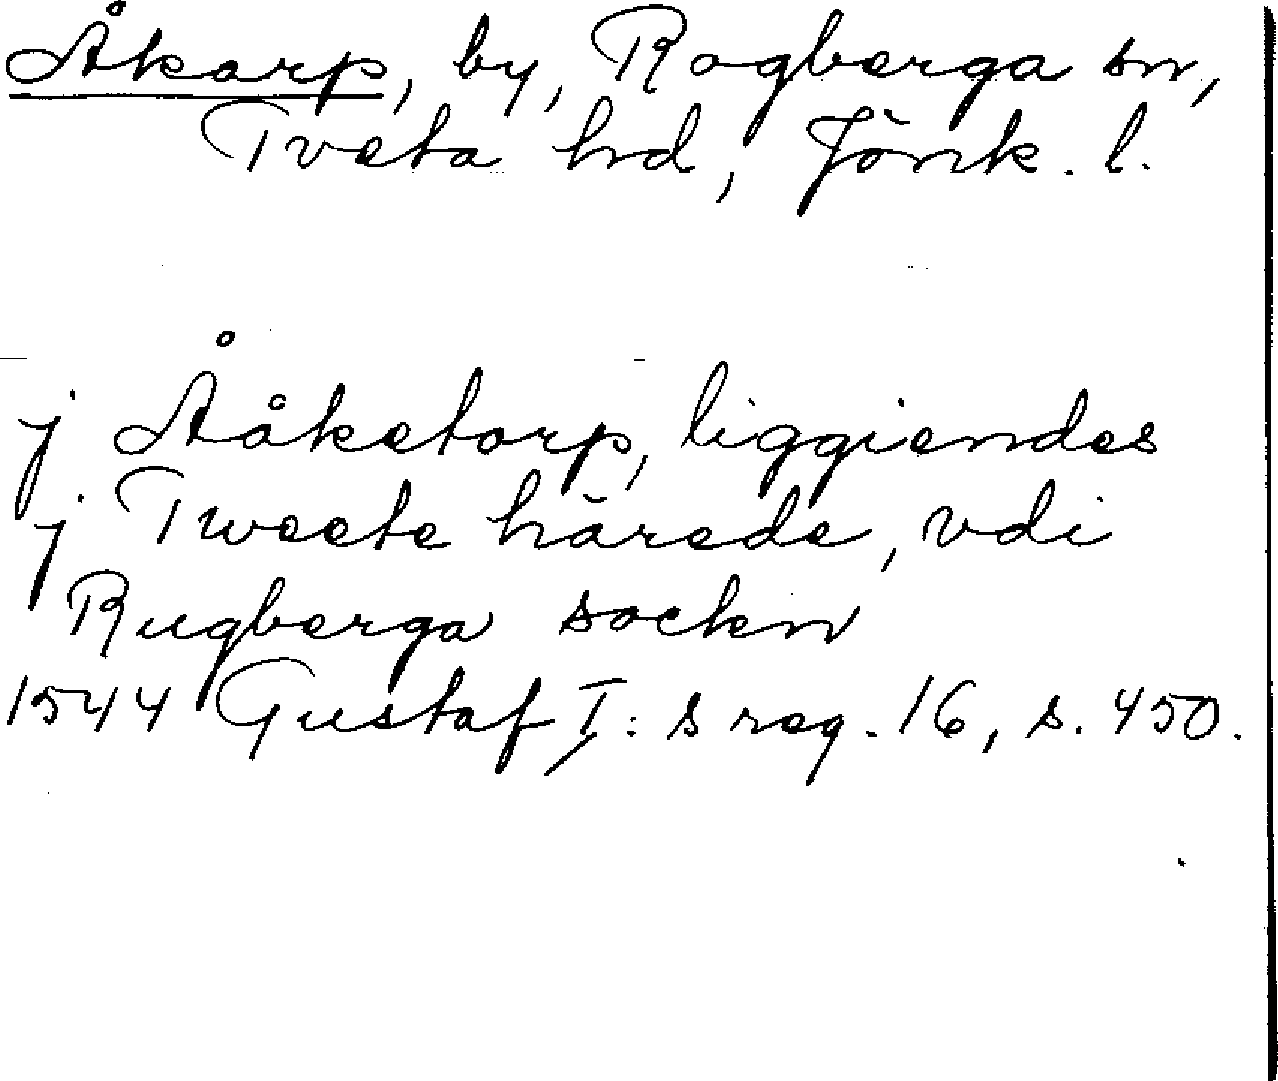 Åkarp, by, Rogberga sn,
Tveta hd, Jönk. l.
j Ååketorp, liggiendes
j Tweete härede, vdi
Rugberga sockn
1544 Gustaf I: s reg. 16, s. 450.